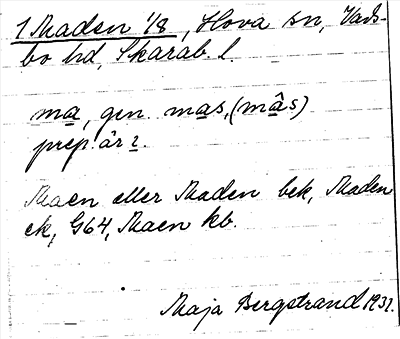 1 Maden 1/8, Hova sn, Vads-
bo hd, Skarab. l.
ma, gen. mas, (mâs)
prep. är i.
Maen eller Maden bek, Maden
ek, G64, Maen kb.
Maja Bergstrand 1932.